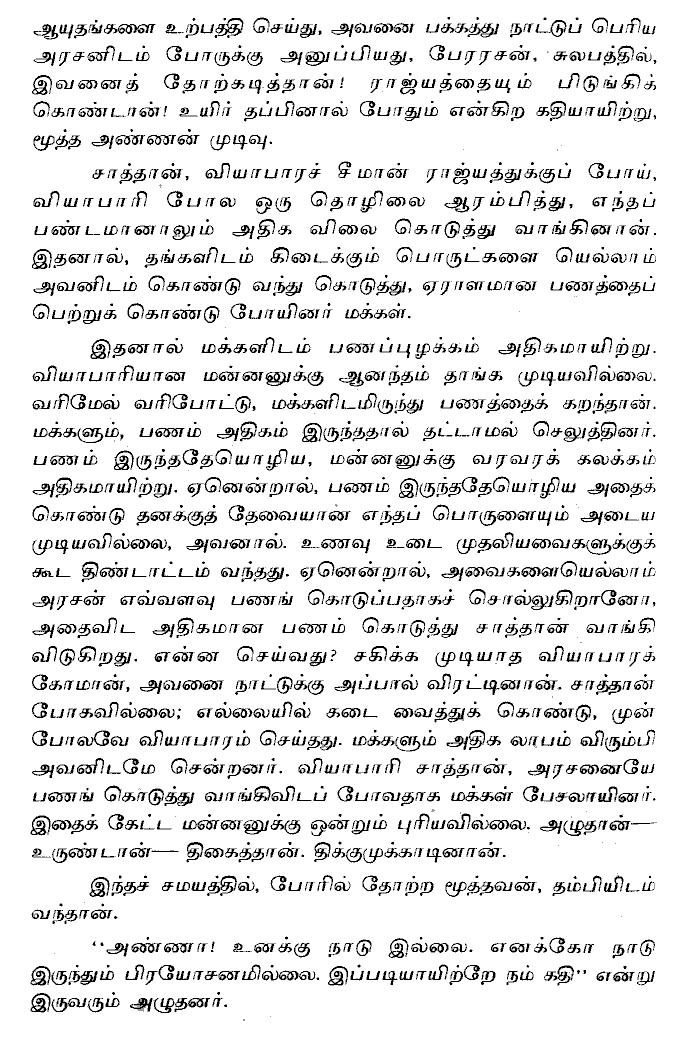 ஆயுதங்களை உற்பத்தி செய்து, அவனை பக்கத்து நாட்டுப் பெரிய
அரசனிடம் போருக்கு அனுப்பியது, பேரரசன், சுலபத்தில்,
இவனைத் தோற்கடித்தான்! ராஜ்யத்தையும் பிடுங்கிக்
கொண்டான்! உயிர் தப்பினால் போதும் என்கிற கதியாயிற்று,
மூத்த அண்ணன் முடிவு.
சாத்தான், வியாபாரச் சீமான் ராஜ்யத்துக்குப் போய்,
வியாபாரி போல ஒரு தொழிலை ஆரம்பித்து, எந்தப்
பண்டமானாலும் அதிக விலை கொடுத்து வாங்கினான்.
இதனால், தங்களிடம் கிடைக்கும் பொருட்களை யெல்லாம்
அவனிடம் கொண்டு வந்து கொடுத்து, ஏராளமான பணத்தைப்
பெற்றுக் கொண்டு போயினர் மக்கள்.
இதனால் மக்களிடம் பணப்புழக்கம் அதிகமாயிற்று.
வியாபாரியான மன்னனுக்கு ஆனந்தம் தாங்க முடியவில்லை.
வரிமேல் வரிபோட்டு, மக்களிடமிருந்து பணத்தைக் கறந்தான்.
மக்களும், பணம் அதிகம் இருந்ததால் தட்டாமல் செலுத்தினர்.
பணம் இருந்ததேயொழிய, மன்னனுக்கு வரவரக் கலக்கம்
அதிகமாயிற்று. ஏனென்றால், பணம் இருந்ததேயொழிய அதைக்
கொண்டு தனக்குத் தேவையான எந்தப் பொருளையும் அடைய
முடியவில்லை, அவனால். உணவு உடை முதலியவைகளுக்குக்
கூட திண்டாட்டம் வந்தது. ஏனென்றால், அவைகளையெல்லாம்
அரசன் எவ்வளவு பணங் கொடுப்பதாகச் சொல்லுகிறானோ,
அதைவிட அதிகமான பணம் கொடுத்து சாத்தான் வாங்கி
விடுகிறது. என்ன செய்வது? சகிக்க முடியாத வியாபாரக்
கோமான், அவனை நாட்டுக்கு அப்பால் விரட்டினான். சாத்தான்
போகவில்லை; எல்லையில் கடை வைத்துக் கொண்டு, முன்
போலவே வியாபாரம் செய்தது. மக்களும் அதிக லாபம் விரும்பி
அவனிடமே சென்றனர். வியாபாரி சாத்தான், அரசனையே
பணங் கொடுத்து வாங்கிவிடப் போவதாக மக்கள் பேசலாயினர்.
இதைக் கேட்ட மன்னனுக்கு ஒன்றும் புரியவில்லை. அழுதான்—
உருண்டான்— திகைத்தான். திக்குமுக்காடினான்.
இந்தச் சமயத்தில், போரில் தோற்ற மூத்தவன், தம்பியிடம்
வந்தான்.
‘‘அண்ணா! உனக்கு நாடு இல்லை. எனக்கோ நாடு
இருந்தும் பிரயோசனமில்லை. இப்படியாயிற்றே நம் கதி’’ என்று
இருவரும் அழுதனர்.